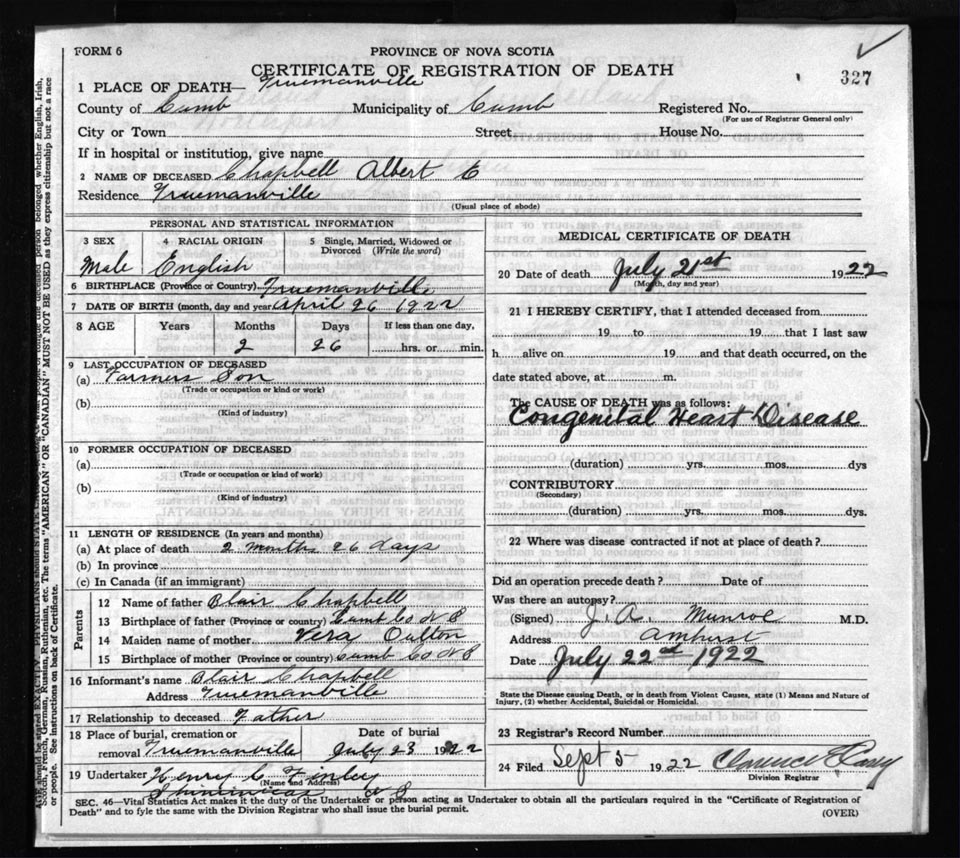 FORM 6
PROVINCE OF NOVA SCOTIA
327
CERTIFICATE OF REGISTRATION OF DEATH
1 PLACE OF DEATH— Truemanville
County of Cumb Municipality of Cumb Registered No.
(For use of Registrar General only)
City or Town Street House No.
If in hospital or institution, give name
2 NAME OF DECEASED Chapbell Albert C
Residence Truemanville
(Usual place of abode)
PERSONAL AND STATISTICAL INFORMATION
3 SEX 4 RACIAL ORIGIN 5 Single, Married, Widowed or
Divorced (Write the word)
Male English
6 BIRTHPLACE (Province or Country) Truemanville
7 DATE OF BIRTH (month, day and year) April 26 1922
8 AGE Years Months Days If less than one day,
2 26 hrs. or min.
9 LAST OCCUPATION OF DECEASED
(a) Farmers Son
(Trade or occupation or kind of work)
(b)
(Kind of industry)
10 FORMER OCCUPATION OF DECEASED
(a)
(Trade or occupation or kind of work)
(b)
(Kind of industry)
11 LENGTH OF RESIDENCE (In years and months)
(a) At place of death 2 months 26 days
(b) In province
(c) In Canada (if an immigrant)
Parents
12 Name of father Blair Chapbell
13 Birthplace of father (Province or country) Cumb Co N S
14 Maiden name of mother Vera Oulton
15 Birthplace of mother (Province or country) Cumb Co N S
16 Informant's name Blair Chapbell
Address Truemanville
17 Relationship to deceased Father
18 Place of burial, cremation or Date of burial
removal Truemanville July 23 1922
19 Undertaker Henry C
(Name and Address)
N S
MEDICAL CERTIFICATE OF DEATH
20 Date of death July 21st 1922
(Month, day and year)
21 I HEREBY CERTIFY, that I attended deceased from
19 to 19 that I last saw
h alive on 19 and that death occurred, on the
date stated above, at m.
The CAUSE OF DEATH was as follows:
Congenital Heart Disease
(duration) yrs. mos. dys
CONTRIBUTORY
(Secondary)
(duration) yrs. mos. dys.
22 Where was disease contracted if not at place of death?
Did an operation precede death? Date of
Was there an autopsy?
(Signed) J. A. Munroe M.D.
Address Amherst
Date July 22nd 1922
State the Disease causing Death, or in death from Violent Causes, state (1) Means and Nature of
Injury, (2) whether Accidental, Suicidal or Homicidal.
23 Registrar's Record Number
24 Filed Sept 5 1922 Clarence E Casey
Division Registrar
SEC. 46—Vital Statistics Act makes it the duty of the Undertaker or person acting as Undertaker to obtain all the particulars required in the "Certificate of Registration of
Death" and to fyle the same with the Division Registrar who shall issue the burial permit.
(OVER)